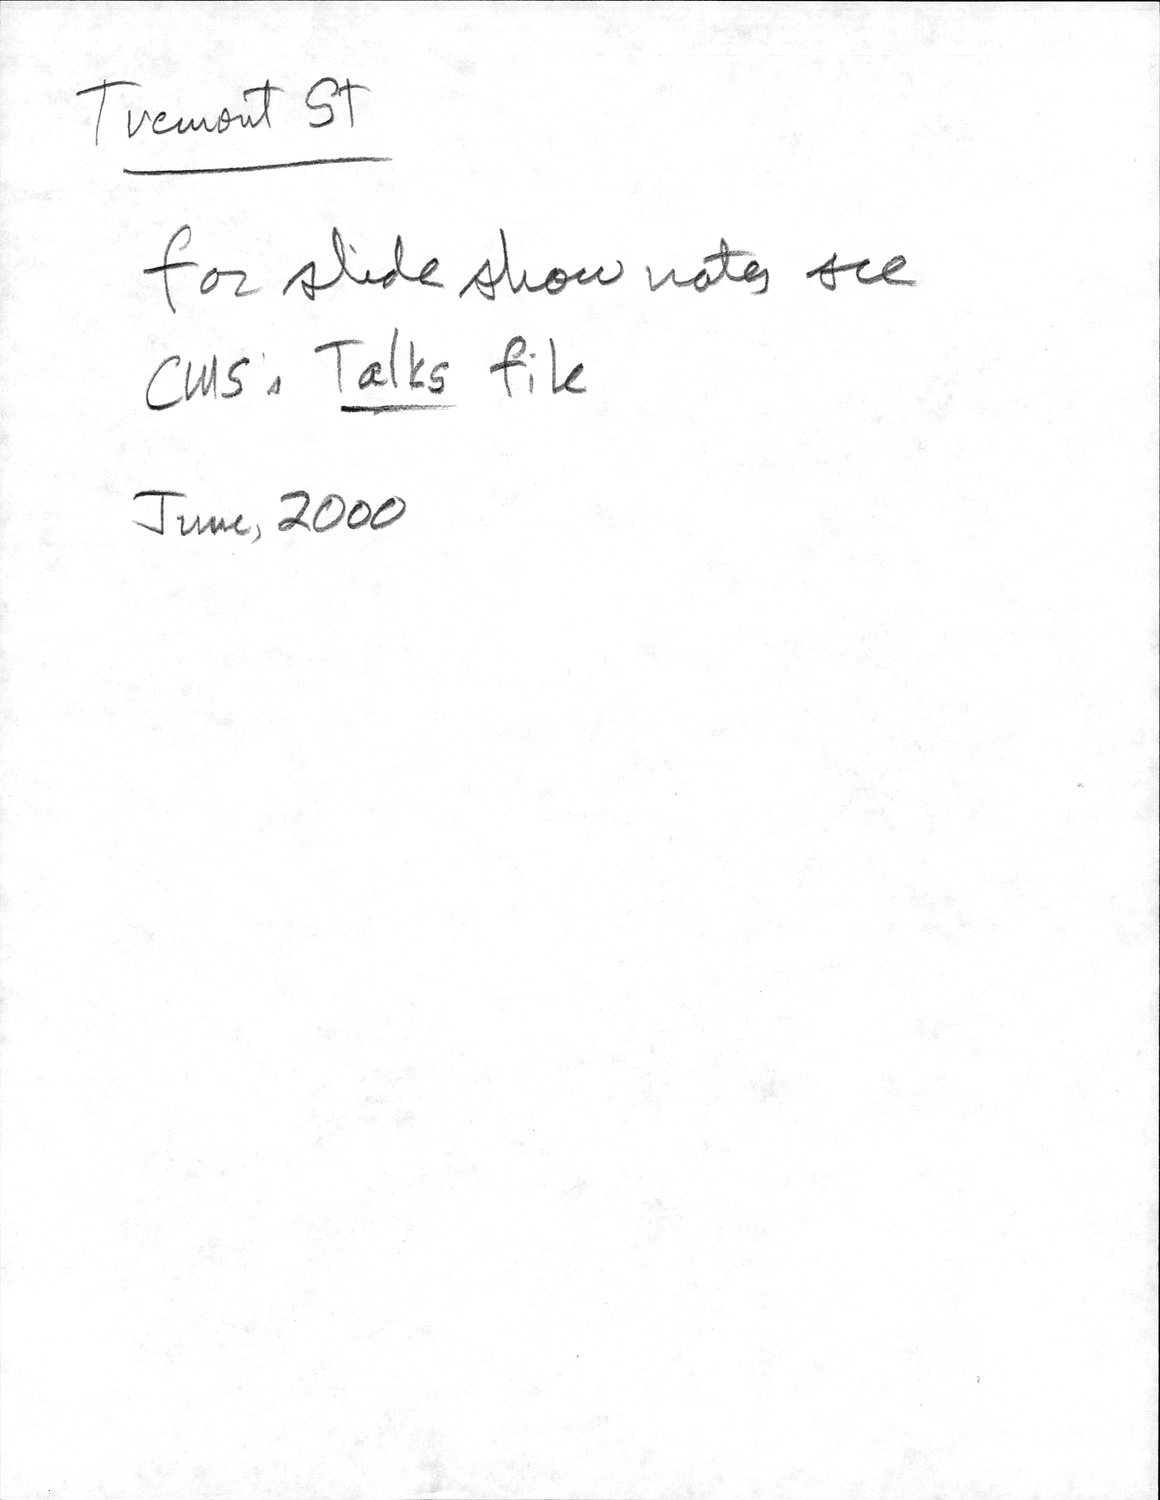 Tremont St
for slide show notes see
CMS's Talks file
June, 2000